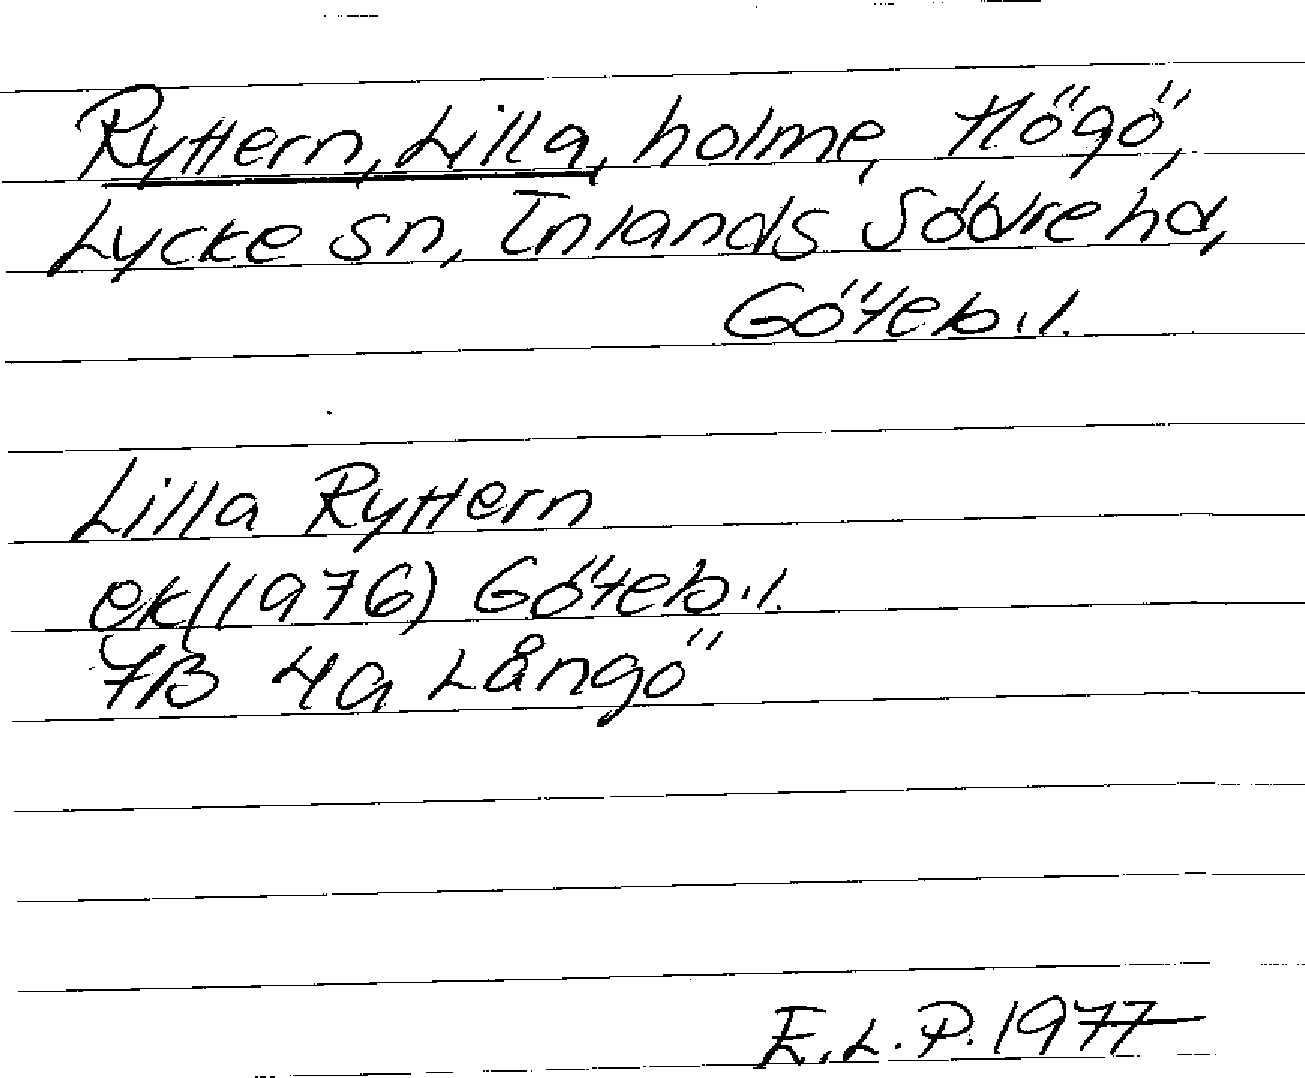 Ryttern, Lilla, holme, Högö,
Lycke sn, Inlands Södre hd,
Göteb.l.
Lilla Ryttern
ek(1976) Göteb.l.
7B 4a Långö
E.L.P. 1977